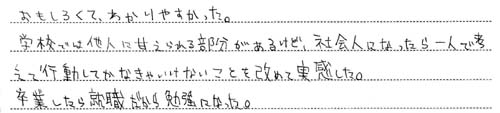 おもしろくて、わかりやすかった。
学校では他人に甘えられる部分があるけど、社会人になったら一人で考
えて行動してかなきゃいけないことを改めて実感した。
卒業したら就職だから勉強になった。